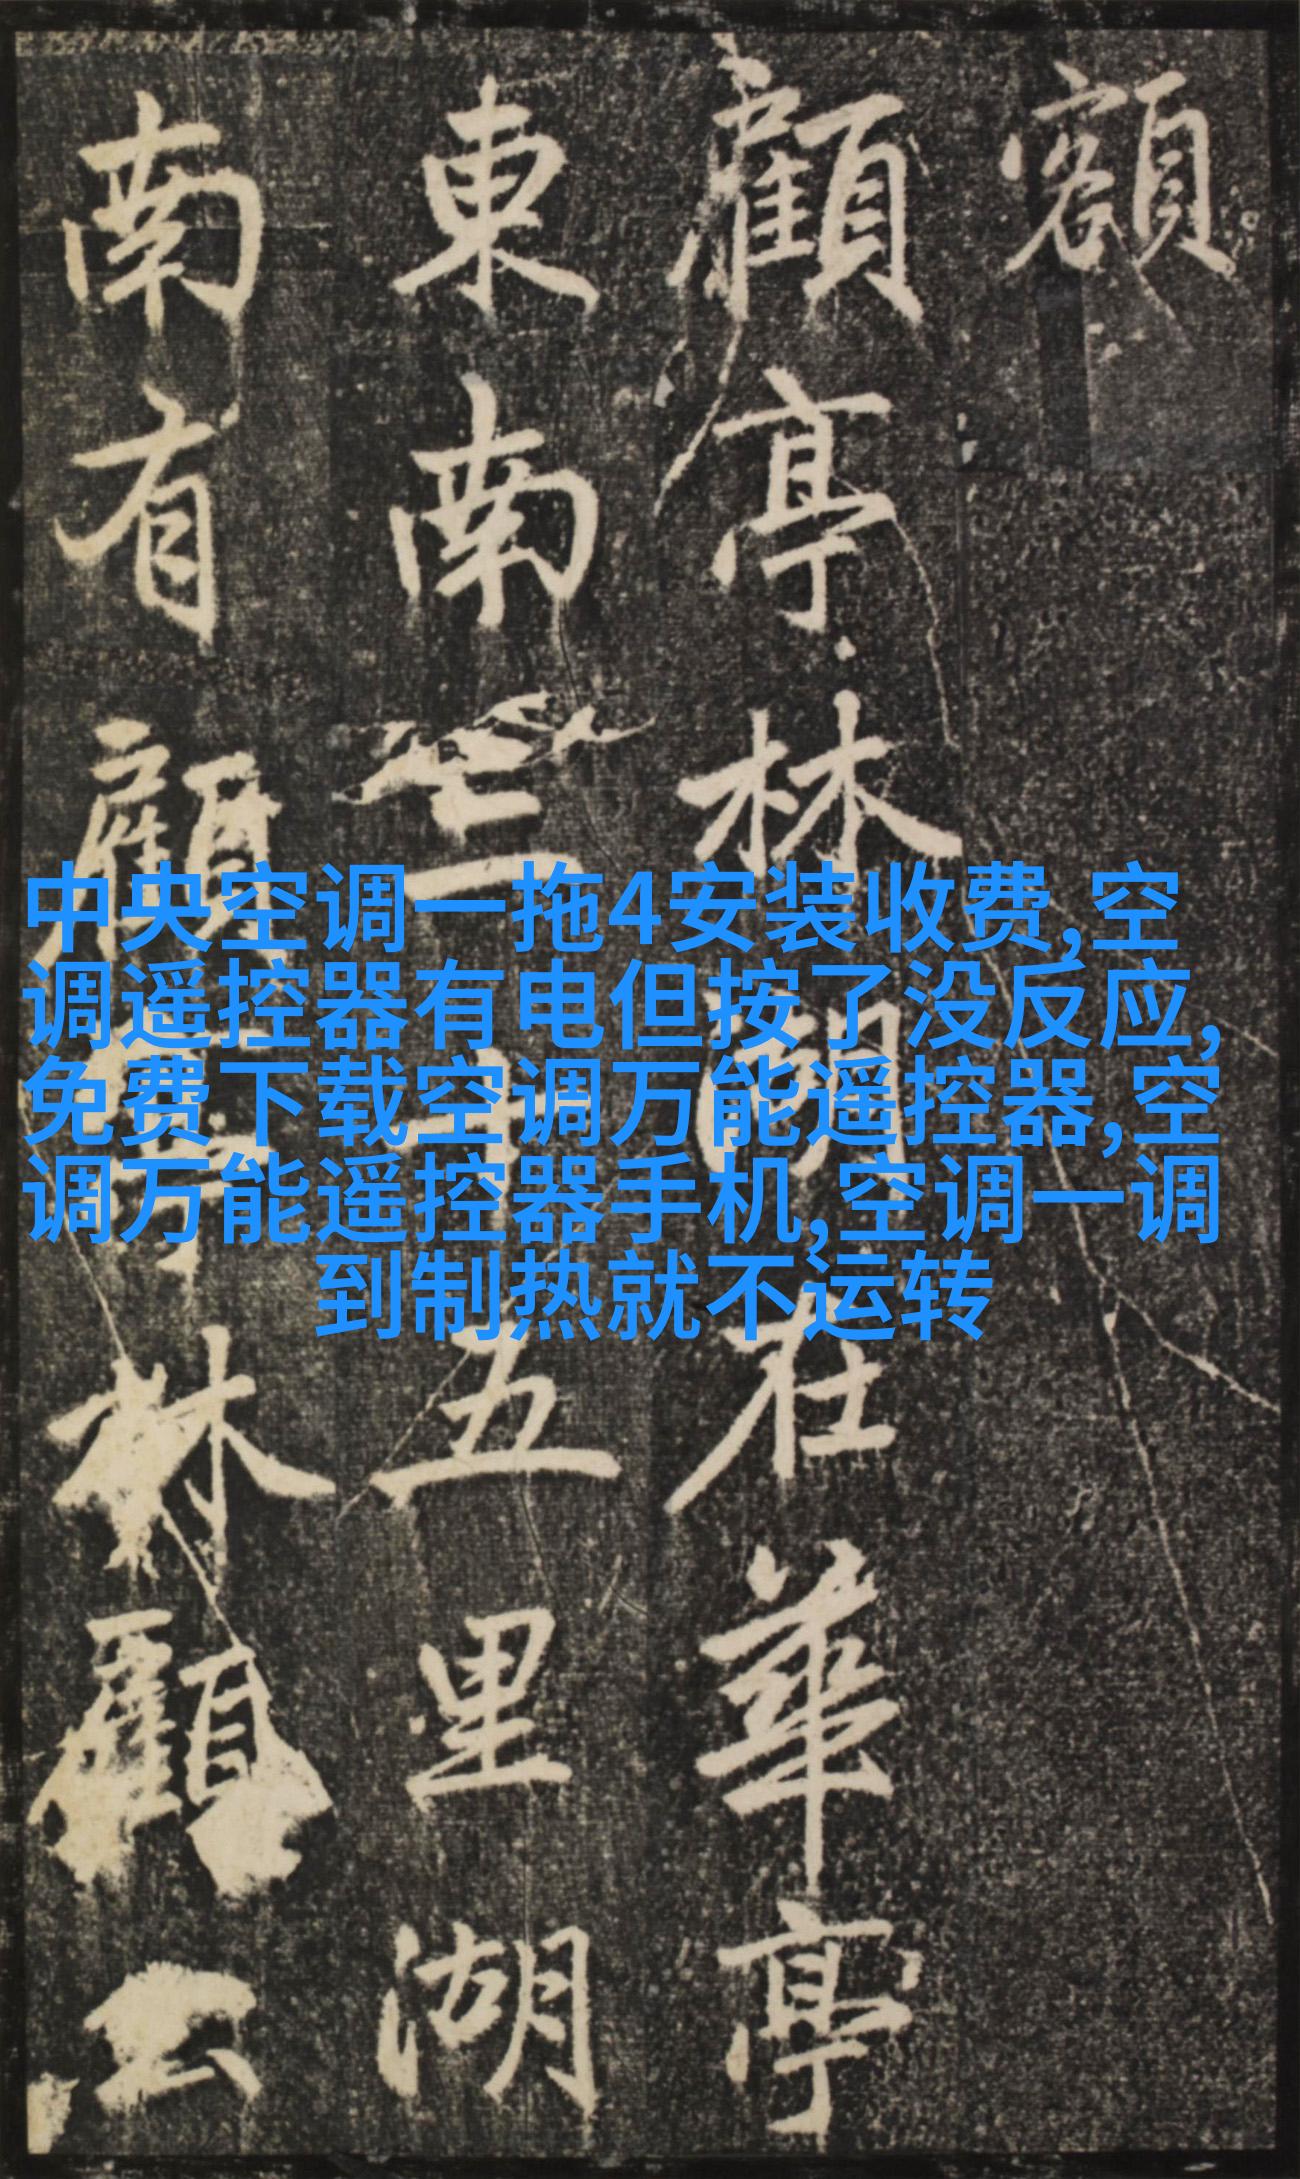 額
顧亭林湖在華亭
東南三十五里湖
南有顧
林顧公
中央空调一拖4安装收费,空
调遥控器有电但按了没反应,
免费下载空调万能遥控器,空
调万能遥控器手机,空调一调
到制热就不运转